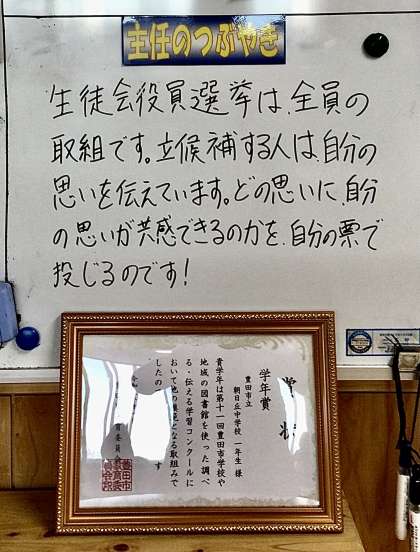 主任のつぶやき
生徒会役員選挙は、全員の
取組です。立候補する人は、自分の
思いを伝えています。どの思いに、自分
の思いが共感できるのかを、自分の票で
投じるのです!
賞状
学年賞
豊田市立
朝日丘中学校 一年生 様
貴学年は第十一回豊田市学校や
地域の図書館を使った調べ
る・伝える学習コンクールに
おいて他の模範となる取組みで
したの
す
育委員会